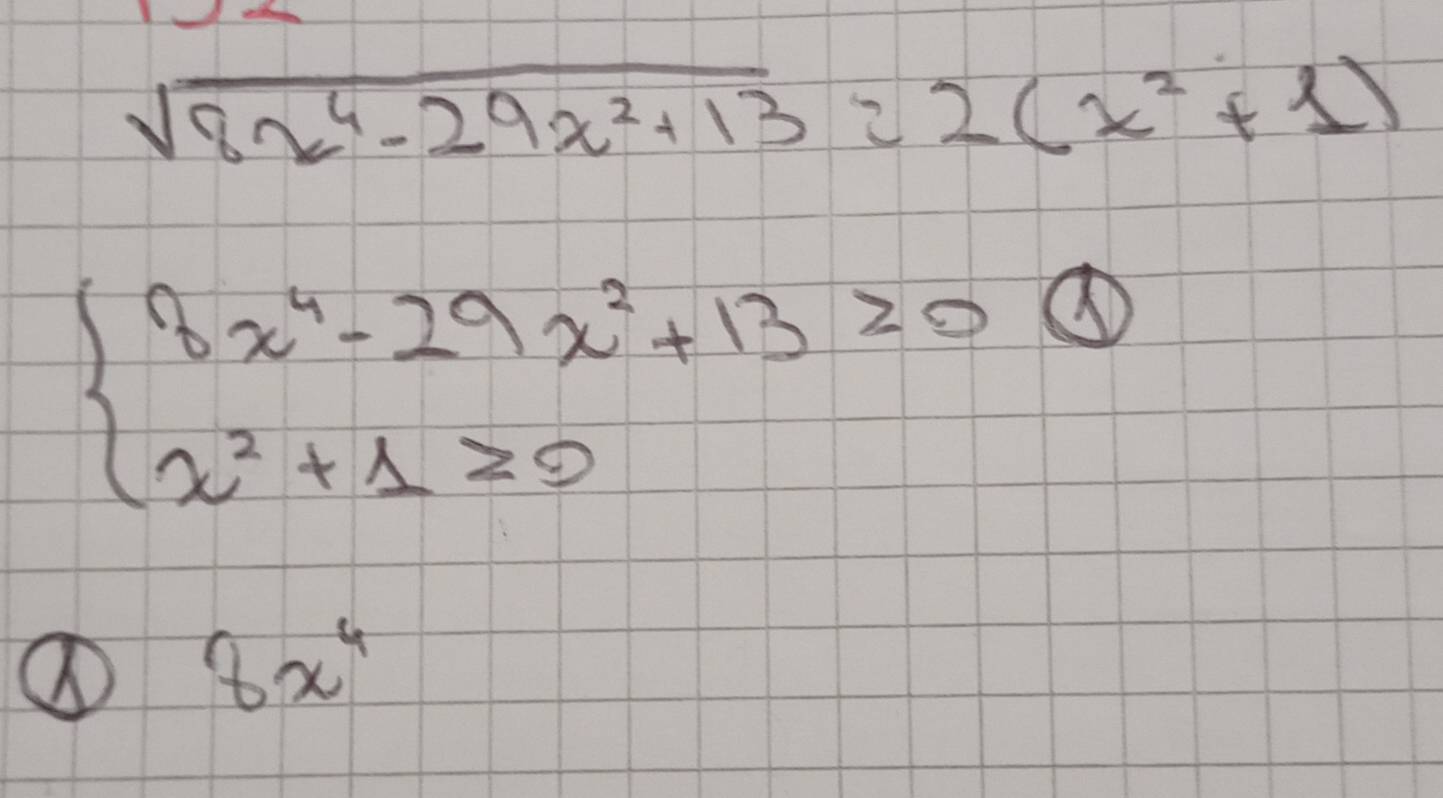 √8x⁴-29x²+13 = 2(x²+1)
8x⁴-29x²+13 ≥0 ①
x²+1 ≥0
① 8x⁴